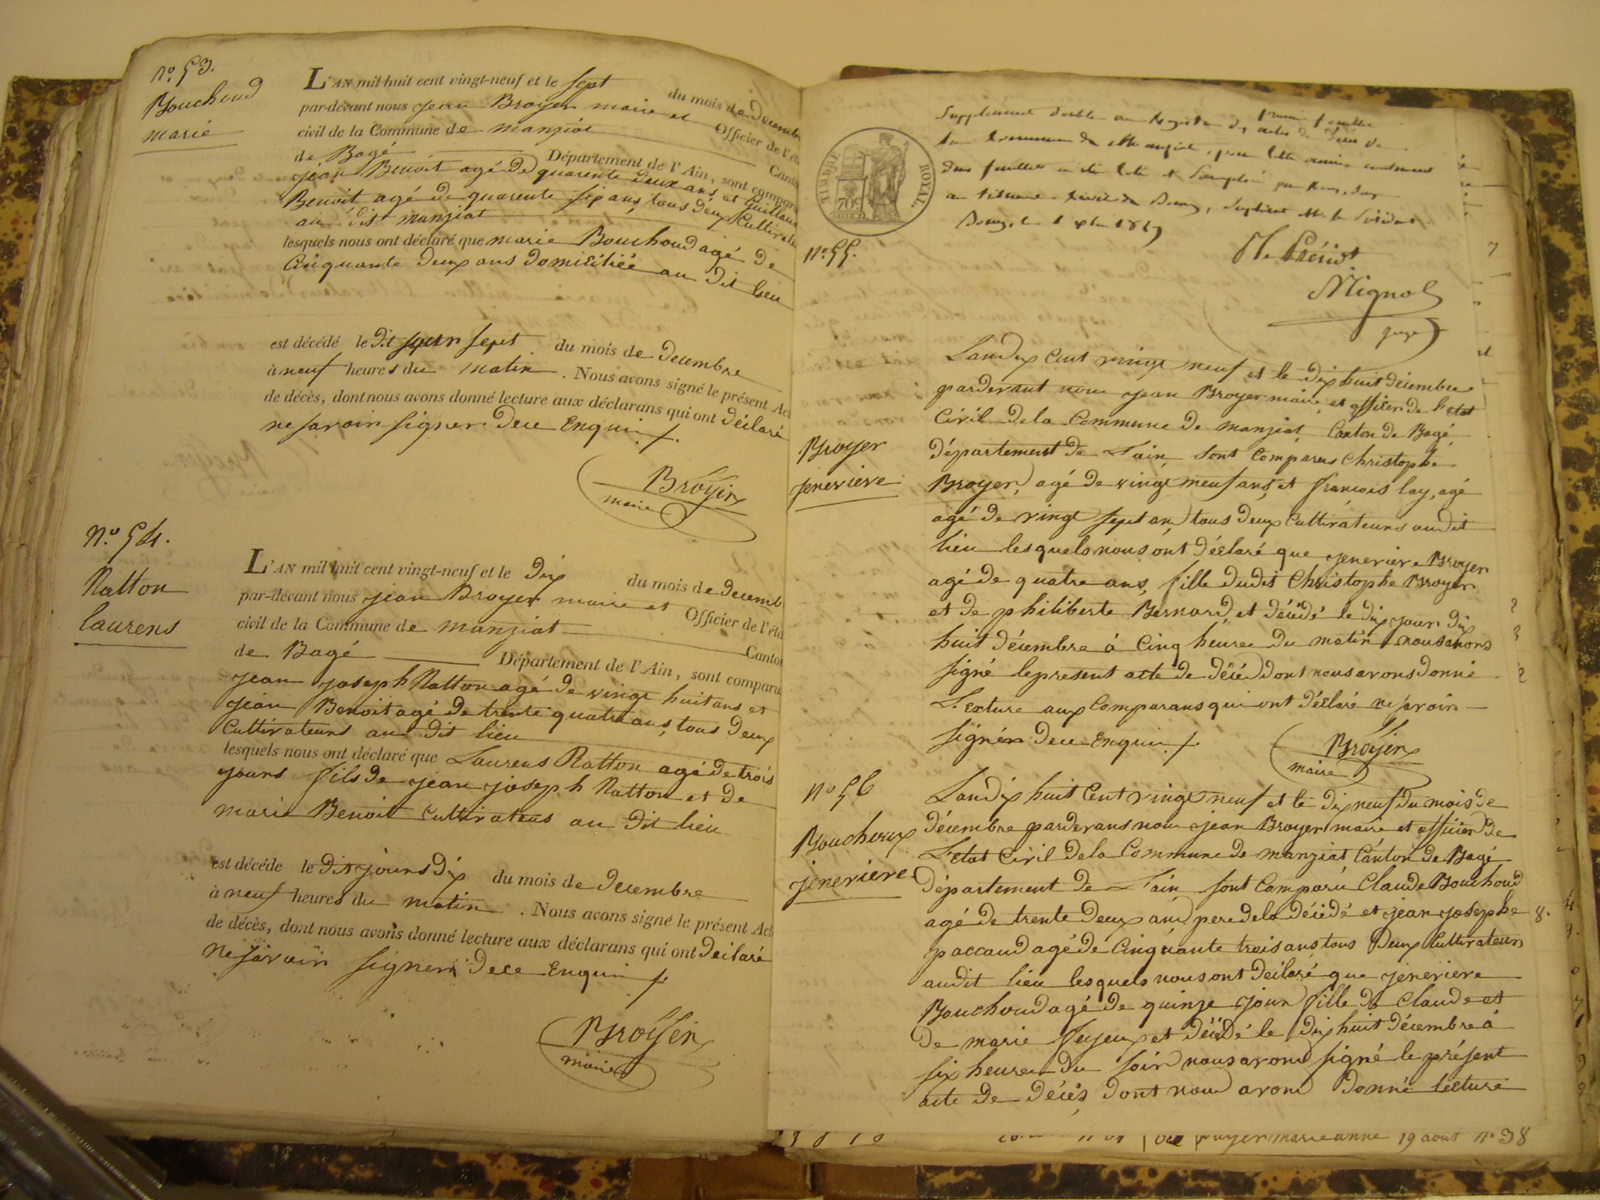 n.° 53.
Bouchoud
marie
L'AN mil huit cent vingt-neuf et le sept du mois de decemb
par-devant nous jean Broyer maire et Officier de l'éta
civil de la Commune de manziat Canto
de Bagé Département de l'Ain, sont compar
jean Benoit agé de quarente deux ans et Guillau
Benoit agé de quarente six ans, tous deux Cultivate
au dit manziat
lesquels nous ont déclaré que marie Bouchoud agé de
Cinquante deux ans domiciliée au dit lieu
est décédé le dit jour sept du mois de decembre
à neuf heures du matin. Nous avons signé le présent Act
de décès, dont nous avons donné lecture aux déclarans qui ont déclaré
ne savoir signer. de ce Enqui
Broyer
maire
n.° 54.
Ratton
laurens
L'AN mil huit cent vingt-neuf et le dix du mois de decemb
par-devant nous jean Broyer maire et Officier de l'éta
civil de la Commune de manziat Canton
de Bagé Département de l'Ain, sont compara
jean joseph Ratton agé de vingt huit ans et
jean Benoit agé de trente quatre ans, tous deux
Cultivateurs au dit lieu
lesquels nous ont déclaré que Laurens Ratton agé de trois
jours fils de jean joseph Ratton et de
marie Benoit Cultivateurs au dit lieu
est décédé le dit jours dix du mois de decembre
à neuf heures du matin. Nous avons signé le présent Act
de décès, dont nous avons donné lecture aux déclarans qui ont déclaré
ne savoir signer de ce Enqui
Broyer
maire
TIMBRE ROYAL
70c
Supplément feuille
la commune de Manziat, pour cette année contenant
deux feuillets
au tribunal de Bourg,
Bourg, le 1829
Mignot
juge
n.° 55.
Broyer
jenevieve
L'an dix Cent vingt neuf et le dix huit décembre
pardevant nous jean Broyer maire et officier de l'etat
Civil de la Commune de manziat Canton de Bagé
département de L'ain, sont Comparus Christophe
Broyer, agé de vingt neuf ans, et françois lay, agé
agé de vingt sept ans tous deux Cultivateurs audit
lieu lesquels nous ont déclaré que jenevieve Broyer
agé de quatre ans, fille dudit Christophe Broyer
et de philiberte Bernard, et décédé le dix jour dix
huit décembre à Cinq heures du matin nous avons
signé le present acte de décé dont nous avons donné
Lecture aux Comparans qui ont déclaré ne savoir
signér de ce Enqui
Broyer
maire
n.° 56
Bouchoux
jenevieve
L'an dix huit Cent vingt neuf et le dix neuf du mois de
décembre pardevans nous jean Broyer maire et officier de
L'etat Civil de la Commune de manziat Canton de Bagé
département de L'ain sont Comparu Claude Bouchoud
agé de trente deux ans pere de la décédé et jean josephe
paccaud agé de Cinquante trois ans, tous deux Cultivateurs
audit lieu lesquels nous ont déclaré que jenevieve
Bouchoud agé de quinze jour fille de Claude et
de marie et décédé le dix huit décembre à
six heures du soir nous avons signé le présent
acte de décès, dont nous avons donné lecture
marie anne 19 aout n° 38